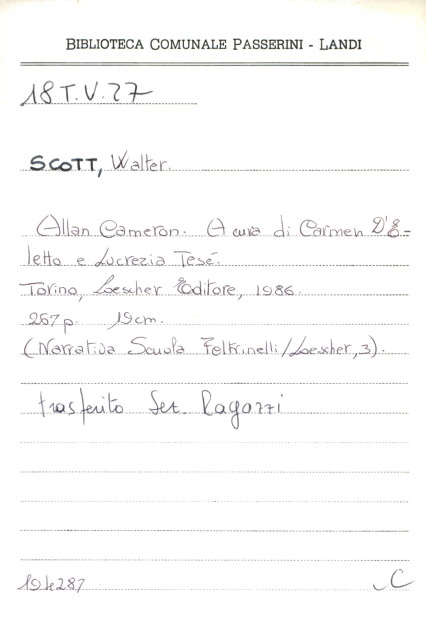 BIBLIOTECA COMUNALE PASSERINI - LANDI
18 T.V.27
SCOTT, Walter.
Allan Cameron. A cura di Carmen D'E-
letto e Lucrezia Tesé.
Torino, Loescher Editore, 1986.
267 p. 19 cm.
(Narrativa Scuola Feltrinelli/Loescher, 3).
trasferito Sez. Ragazzi
C